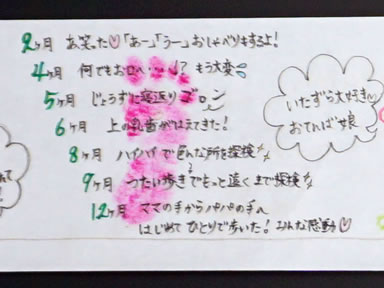 2ヶ月 あ、笑った♡「あー」「うー」おしゃべりもするよ!
4ヶ月 何でもお口へ…!? もう大変
5ヶ月 じょうずに寝返り ゴロン
6ヶ月 上の乳歯がはえてきた!
8ヶ月 ハイハイで色んな所を探検
9ヶ月 つたい歩きでもっと遠くまで探検
12ヶ月 ママの手からパパの手へ
はじめてひとりで歩いた! みんな感動♡
いたずら大好き
おてんば娘